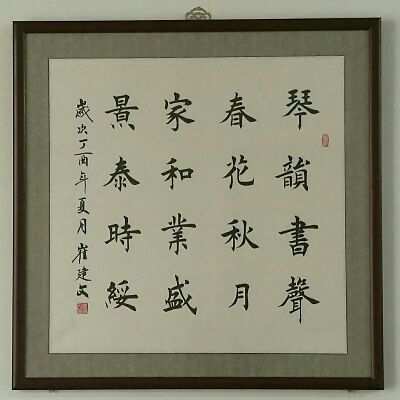 琴韻書聲
春花秋月
家和業盛
景泰時綏
歲次丁酉年夏月崔建文